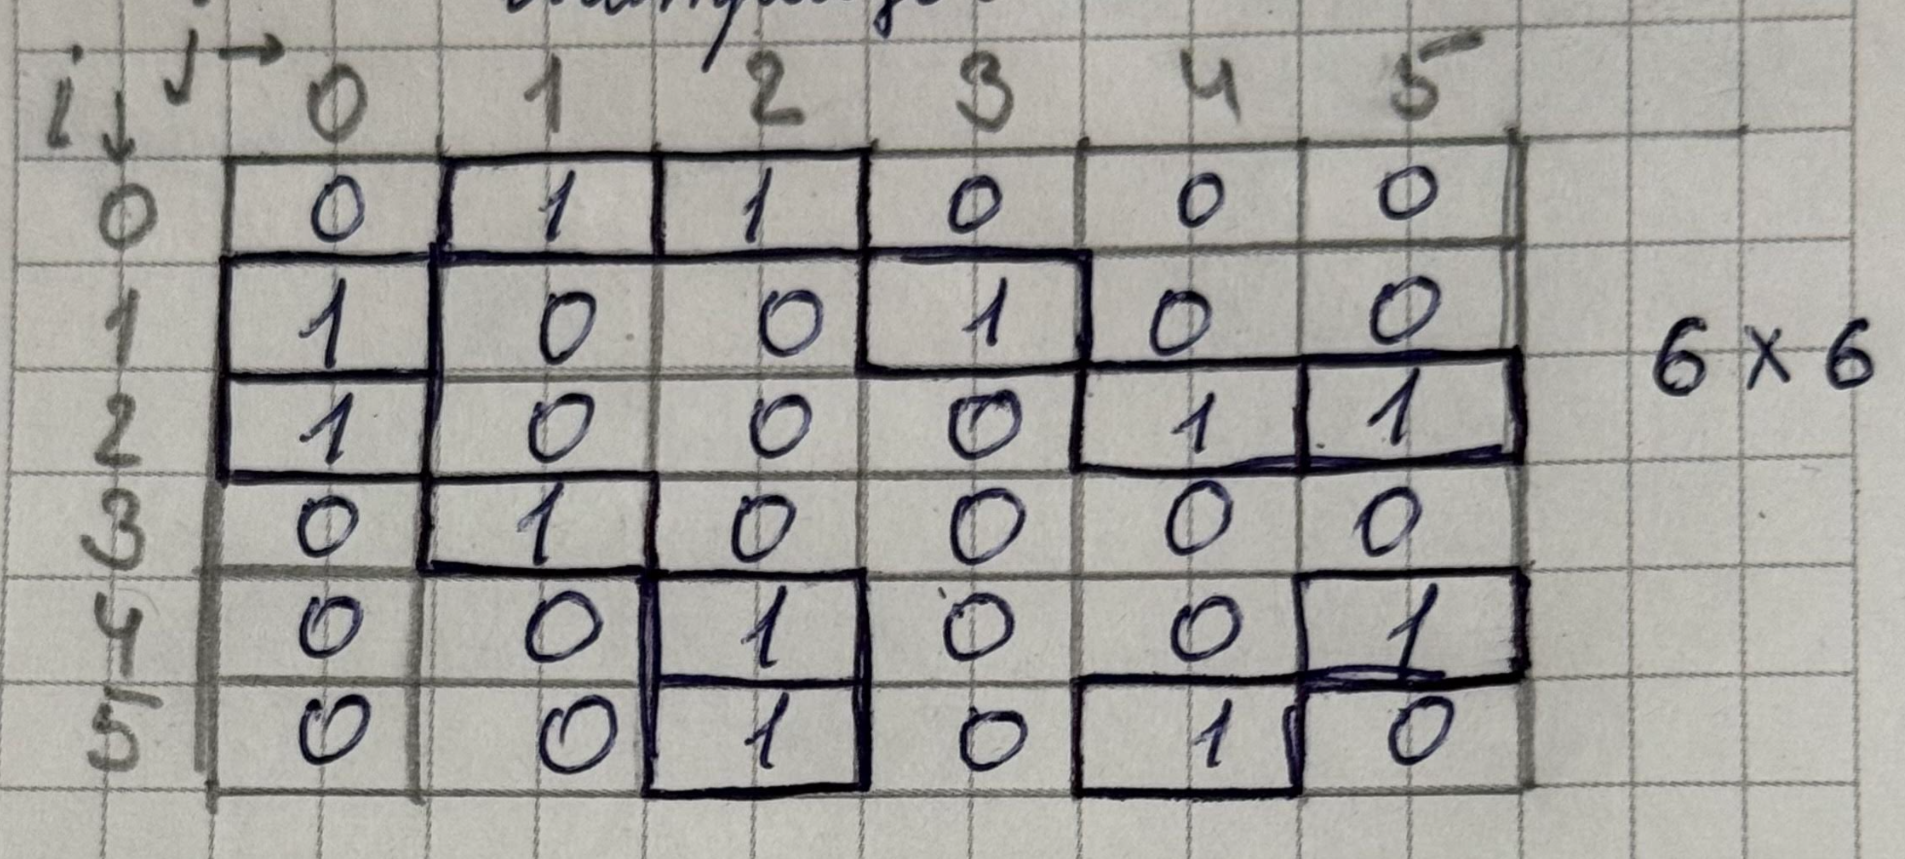 i ↓ j →
0 1 2 3 4 5
0 0 1 1 0 0 0
1 1 0 0 1 0 0
2 1 0 0 0 1 1
3 0 1 0 0 0 0
4 0 0 1 0 0 1
5 0 0 1 0 1 0
6 x 6